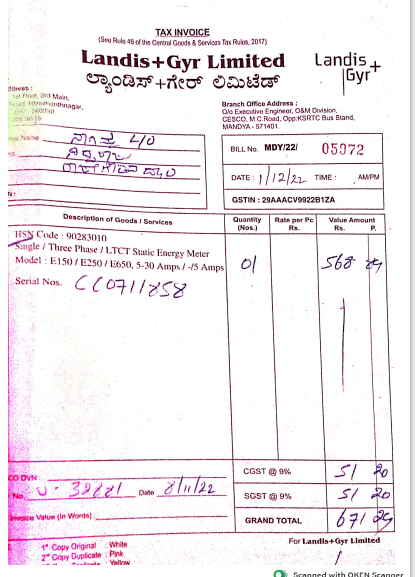 TAX INVOICE
(See Rule 46 of the Central Goods & Services Tax Rules, 2017)
Landis+Gyr Limited
ಲ್ಯಾಂಡಿಸ್+ಗೇರ್ ಲಿಮಿಟೆಡ್
Landis+
Gyr
Floor, 3rd Main,
Branch Office Address :
O/o Executive Engineer, O&M Division,
CESCO, M.C.Road, Opp:KSRTC Bus Stand,
MANDYA - 571401.
Name
BILL No. MDY/22/ 05972
DATE : 1/12/22 TIME : AM/PM
GSTIN : 29AAACV9922B1ZA
Description of Goods / Services Quantity (Nos.) Rate per Pc Rs. Value Amount Rs. P.
HSN Code : 90283010
Single / Three Phase / LTCT Static Energy Meter
Model : E150 / E250 / E650, 5-30 Amps / -/5 Amps 01 568 89
Serial Nos. CC0711858
CGST @ 9% 51 20
DVN
No. Date 8/11/22 SGST @ 9% 51 20
Invoice Value (In Words) : GRAND TOTAL 671 29
For Landis+Gyr Limited
1st Copy Original : White
2nd Copy Duplicate : Pink
Yellow
Scanned with OKEN Scanner